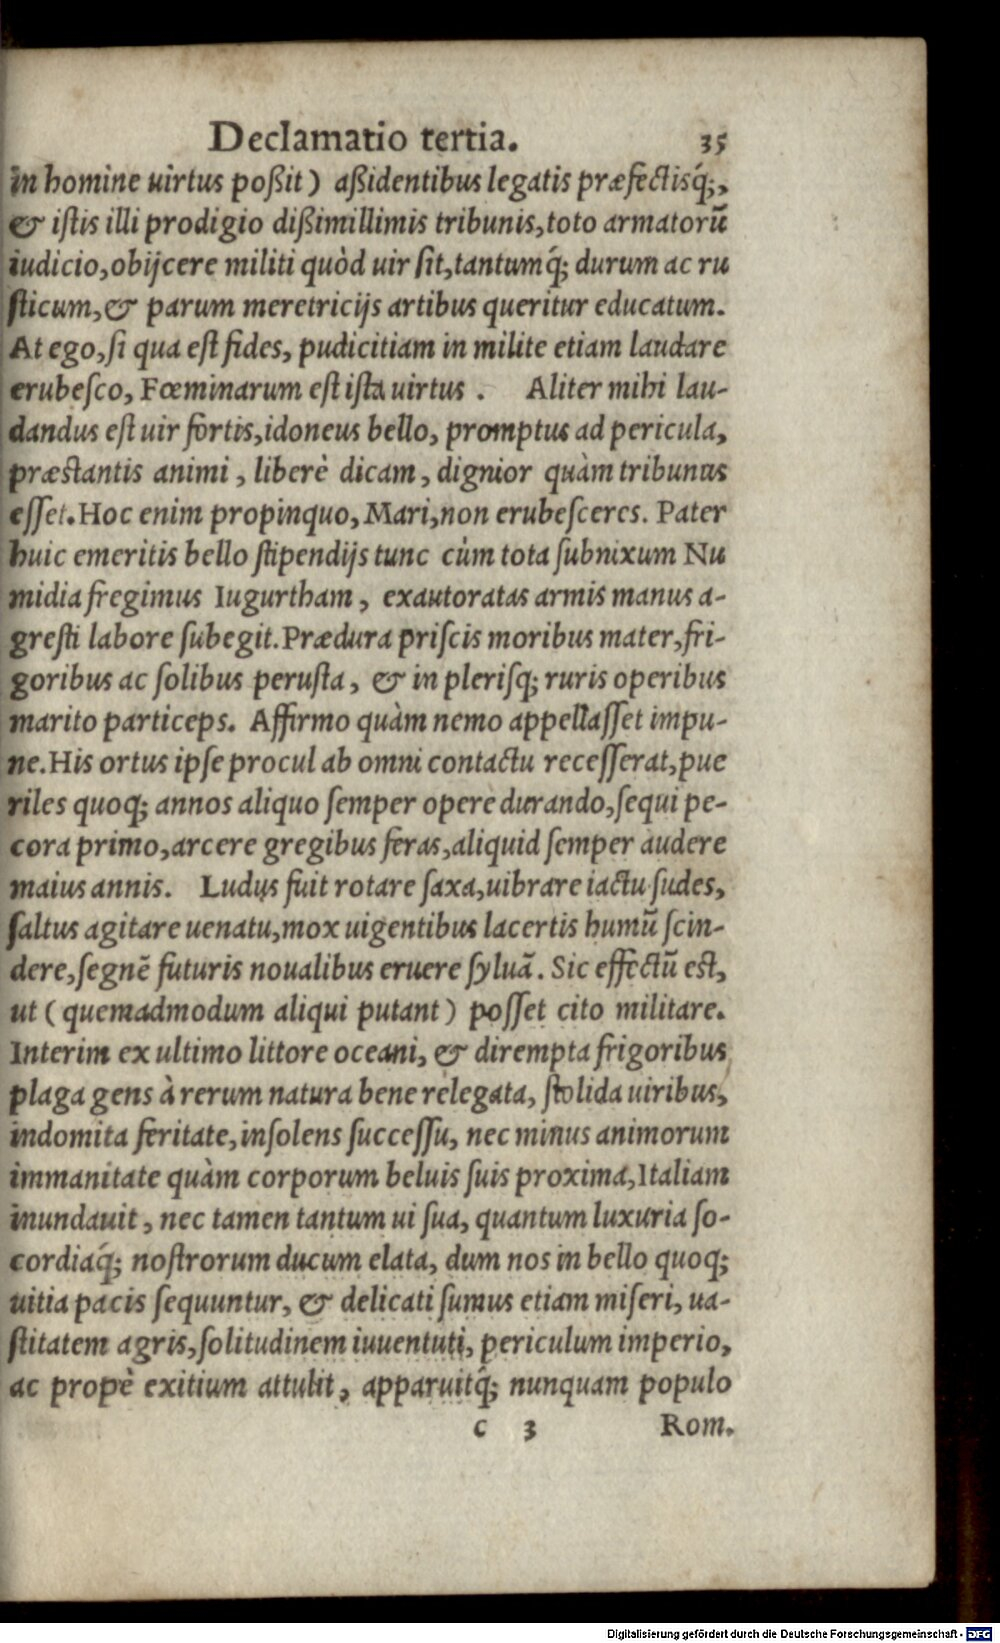 Declamatio tertia. 35
in homine uirtus poßit) aßidentibus legatis præfectisq́;,
& istis illi prodigio dißimillimis tribunis, toto armatorū
iudicio, obijcere militi quòd uir sit, tantumq́; durum ac ru
sticum, & parum meretricijs artibus queritur educatum.
At ego, si qua est fides, pudicitiam in milite etiam laudare
erubesco, Fœminarum est ista uirtus. Aliter mihi lau-
dandus est uir fortis, idoneus bello, promptus ad pericula,
præstantis animi, liberè dicam, dignior quàm tribunus
esset. Hoc enim propinquo, Mari, non erubesceres. Pater
huic emeritis bello stipendijs tunc cùm tota subnixum Nu
midia fregimus Iugurtham, exautoratas armis manus a-
gresti labore subegit. Prædura priscis moribus mater, fri-
goribus ac solibus perusta, & in plerisq; ruris operibus
marito particeps. Affirmo quàm nemo appellasset impu-
ne. His ortus ipse procul ab omni contactu recesserat, pue
riles quoq; annos aliquo semper opere durando, sequi pe-
cora primo, arcere gregibus feras, aliquid semper audere
maius annis. Ludus fuit rotare saxa, uibrare iactu sudes,
saltus agitare uenatu, mox uigentibus lacertis humū scin-
dere, segnē futuris noualibus eruere syluā. Sic effectū est,
ut (quemadmodum aliqui putant) posset cito militare.
Interim ex ultimo littore oceani, & dirempta frigoribus
plaga gens à rerum natura bene relegata, stolida uiribus,
indomita feritate, insolens successu, nec minus animorum
immanitate quàm corporum beluis suis proxima, Italiam
inundauit, nec tamen tantum ui sua, quantum luxuria so-
cordiaq́; nostrorum ducum elata, dum nos in bello quoq;
uitia pacis sequuntur, & delicati sumus etiam miseri, ua-
stitatem agris, solitudinem iuuentuti, periculum imperio,
ac propè exitium attulit, apparuitq́; nunquam populo
c 3 Rom.
Digitalisierung gefördert durch die Deutsche Forschungsgemeinschaft - DFG